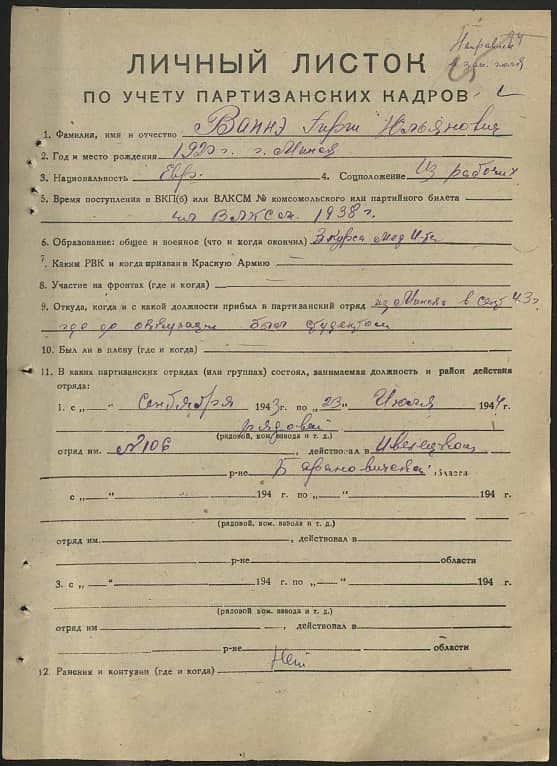 ЛИЧНЫЙ ЛИСТОК
ПО УЧЕТУ ПАРТИЗАНСКИХ КАДРОВ
1. Фамилия, имя и отчество Ваннэ Гирш
2. Год и место рождения 1920 г. г. Минск
3. Национальность Евр. 4. Соцположение Из рабочих
5. Время поступления в ВКП(б) или ВЛКСМ № комсомольского или партийного билета
чл ВЛКСМ. 1938 г.
6. Образование: общее и военное (что и когда окончил) 3 курса мед И-та
7. Каким РВК и когда призван в Красную Армию
8. Участие на фронтах (где и когда)
9. Откуда, когда и с какой должности прибыл в партизанский отряд из Минска в сент 43 г.
где до оккупации был студентом
10. Был ли в плену (где и когда)
11. В каких партизанских отрядах (или группах) состоял, занимаемая должность и район действия
отряда:
1. с „ “ Сентября 1943 г. по „23“ Июля 1944 г.
рядовой
(рядовой, ком. взвода и т. д.)
отряд им. №106, действовал в Ивенецком
р-не Барановичевской области
с „ “ 194 г. по „ “ 194 г.
(рядовой, ком. взвода и т. д.)
отряд им. , действовал в
р-не области
3. с „ “ 194 г. по „ “ 194 г.
(рядовой ком. взвода и т. д.)
отряд им , действовал в
р-не области
12. Ранения и контузии (где и когда) Нет